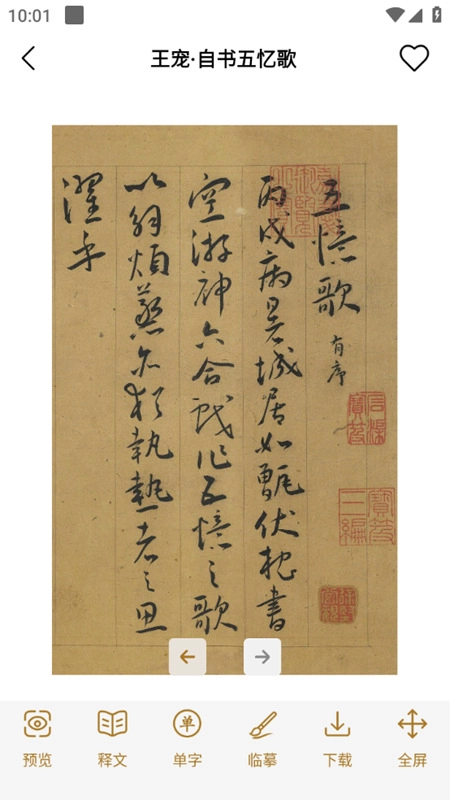 10:01
王宠·自书五忆歌
五憶歌
有序
丙戌病暑城居如甑伏枕書
空游神六合戏作五憶之歌
以解煩蒸亦猶執熱者之思
濯手
信天
寶笈
三編
預览
释文
单
单字
临摹
下载
全屏